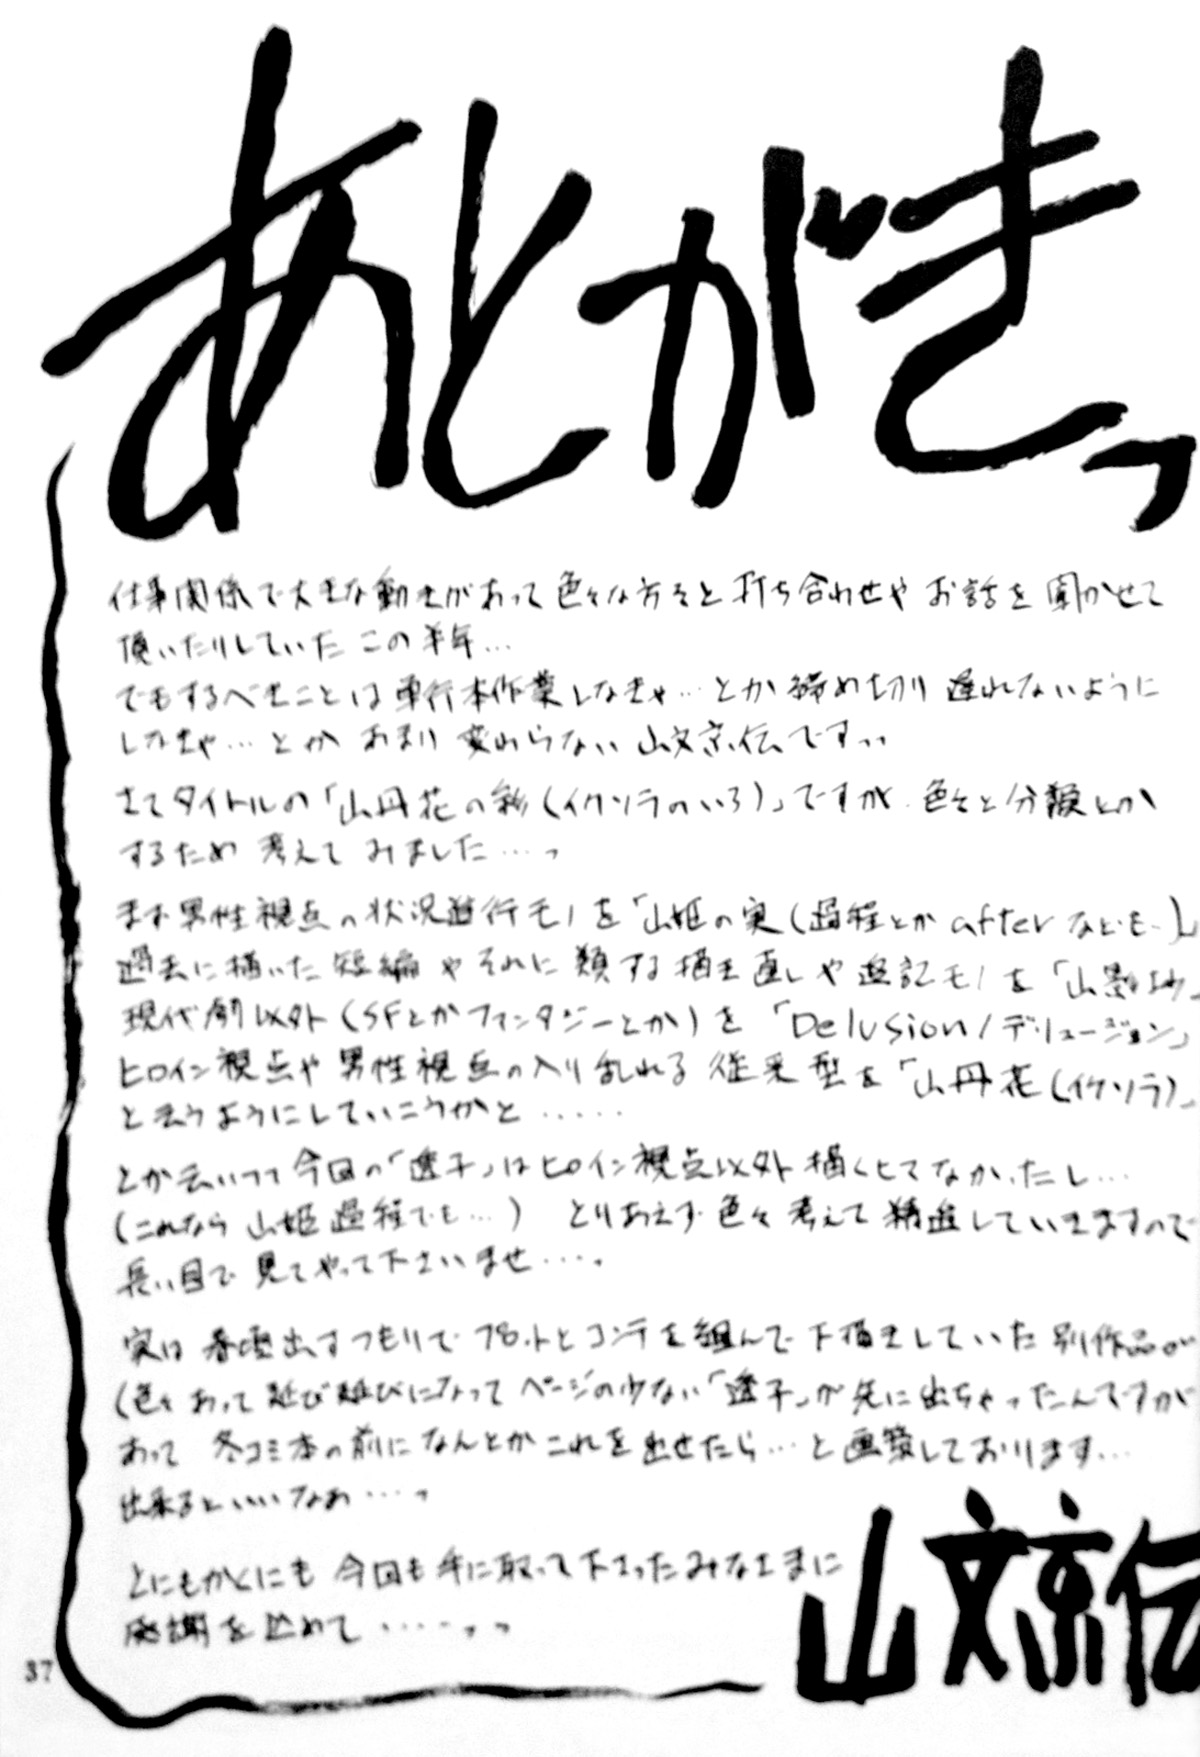 あとがきっ
仕事関係で大きな動きがあって色々な方々と打ち合わせやお話を聞かせて
頂いたりしていたこの半年…
でもするべきことは単行本作業しなきゃ…とか締め切り遅れないように
しなきゃ…とかあまり変わらない山文京伝ですっっ
さてタイトルの「山丹花の彩(イクソラのいろ)」ですが、色々と分類とか
するため考えてみました…っ
まず男性視点の状況進行モノを「山姫の実(過程とかafterなども…)」
過去に描いた短編やそれに類する描き直しや追記モノを「山影抄」
現代劇以外(SFとかファンタジーとか)を「Delusion/デリュージョン」
ヒロイン視点や男性視点の入り乱れる従来型を「山丹花(イクソラ)」
と云うようにしていこうかと……
とか云いつつ今回の「透子」はヒロイン視点以外描くヒマなかったし…
(これなら山姫過程でも…) とりあえず色々考えて精進していきますので
長い目で見てやって下さいませ…。
実は春頃出すつもりでプロットとコンテを組んで下描きしていた別作品が
(色々あって延び延びになってページの少ない「透子」が先に出ちゃったんですが
あって 冬コミ本の前になんとかこれを出せたら…と画策しております…
出来るといいなぁ…っ
とにもかくにも今回も手に取って下さったみなさまに
感謝を込めて……っっ
山文京伝
37